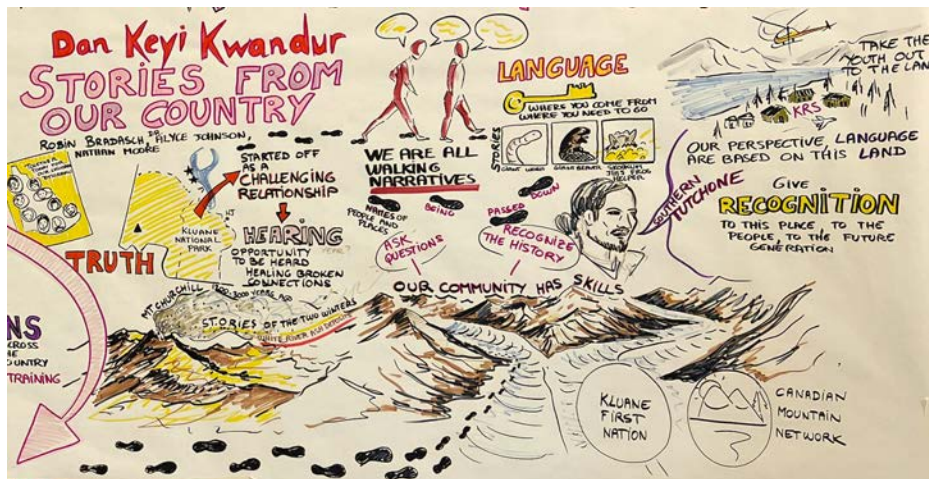 Dan Keyi Kwandur
STORIES FROM
OUR COUNTRY
ROBIN BRADASCH, DR. ALYCE JOHNSON,
NATHAN MOORE
KLUANE
NATIONAL
PARK
TRUTH
STARTED OFF
AS A
CHALLENGING
RELATIONSHIP
HEARING
OPPORTUNITY
TO BE HEARD
HEALING BROKEN
CONNECTIONS
MT CHURCHILL
STORIES OF THE TWO WINTERS
WHITE RIVER ASH
NS
CROSS
HE
OUNTRY
TRAINING
WE ARE ALL
WALKING
NARRATIVES
NAMES OF
PEOPLE AND
PLACES
BEING
PASSED
DOWN
ASK
QUESTIONS
RECOGNIZE
THE HISTORY
OUR COMMUNITY HAS SKILLS
LANGUAGE
WHERE YOU COME FROM
WHERE YOU NEED TO GO
STORIES
GIANT WORM
GIANT BEAVER
FROG
HELPER
SOUTHERN
TUTCHONE
TAKE THE
YOUTH OUT
TO THE LAN
KRS
OUR PERSPECTIVE, LANGUAGE
ARE BASED ON THIS LAND
GIVE
RECOGNITION
TO THIS PLACE, TO THE
PEOPLE, TO THE FUTURE
GENERATION
KLUANE
FIRST
NATION
CANADIAN
MOUNTAIN
NETWORK